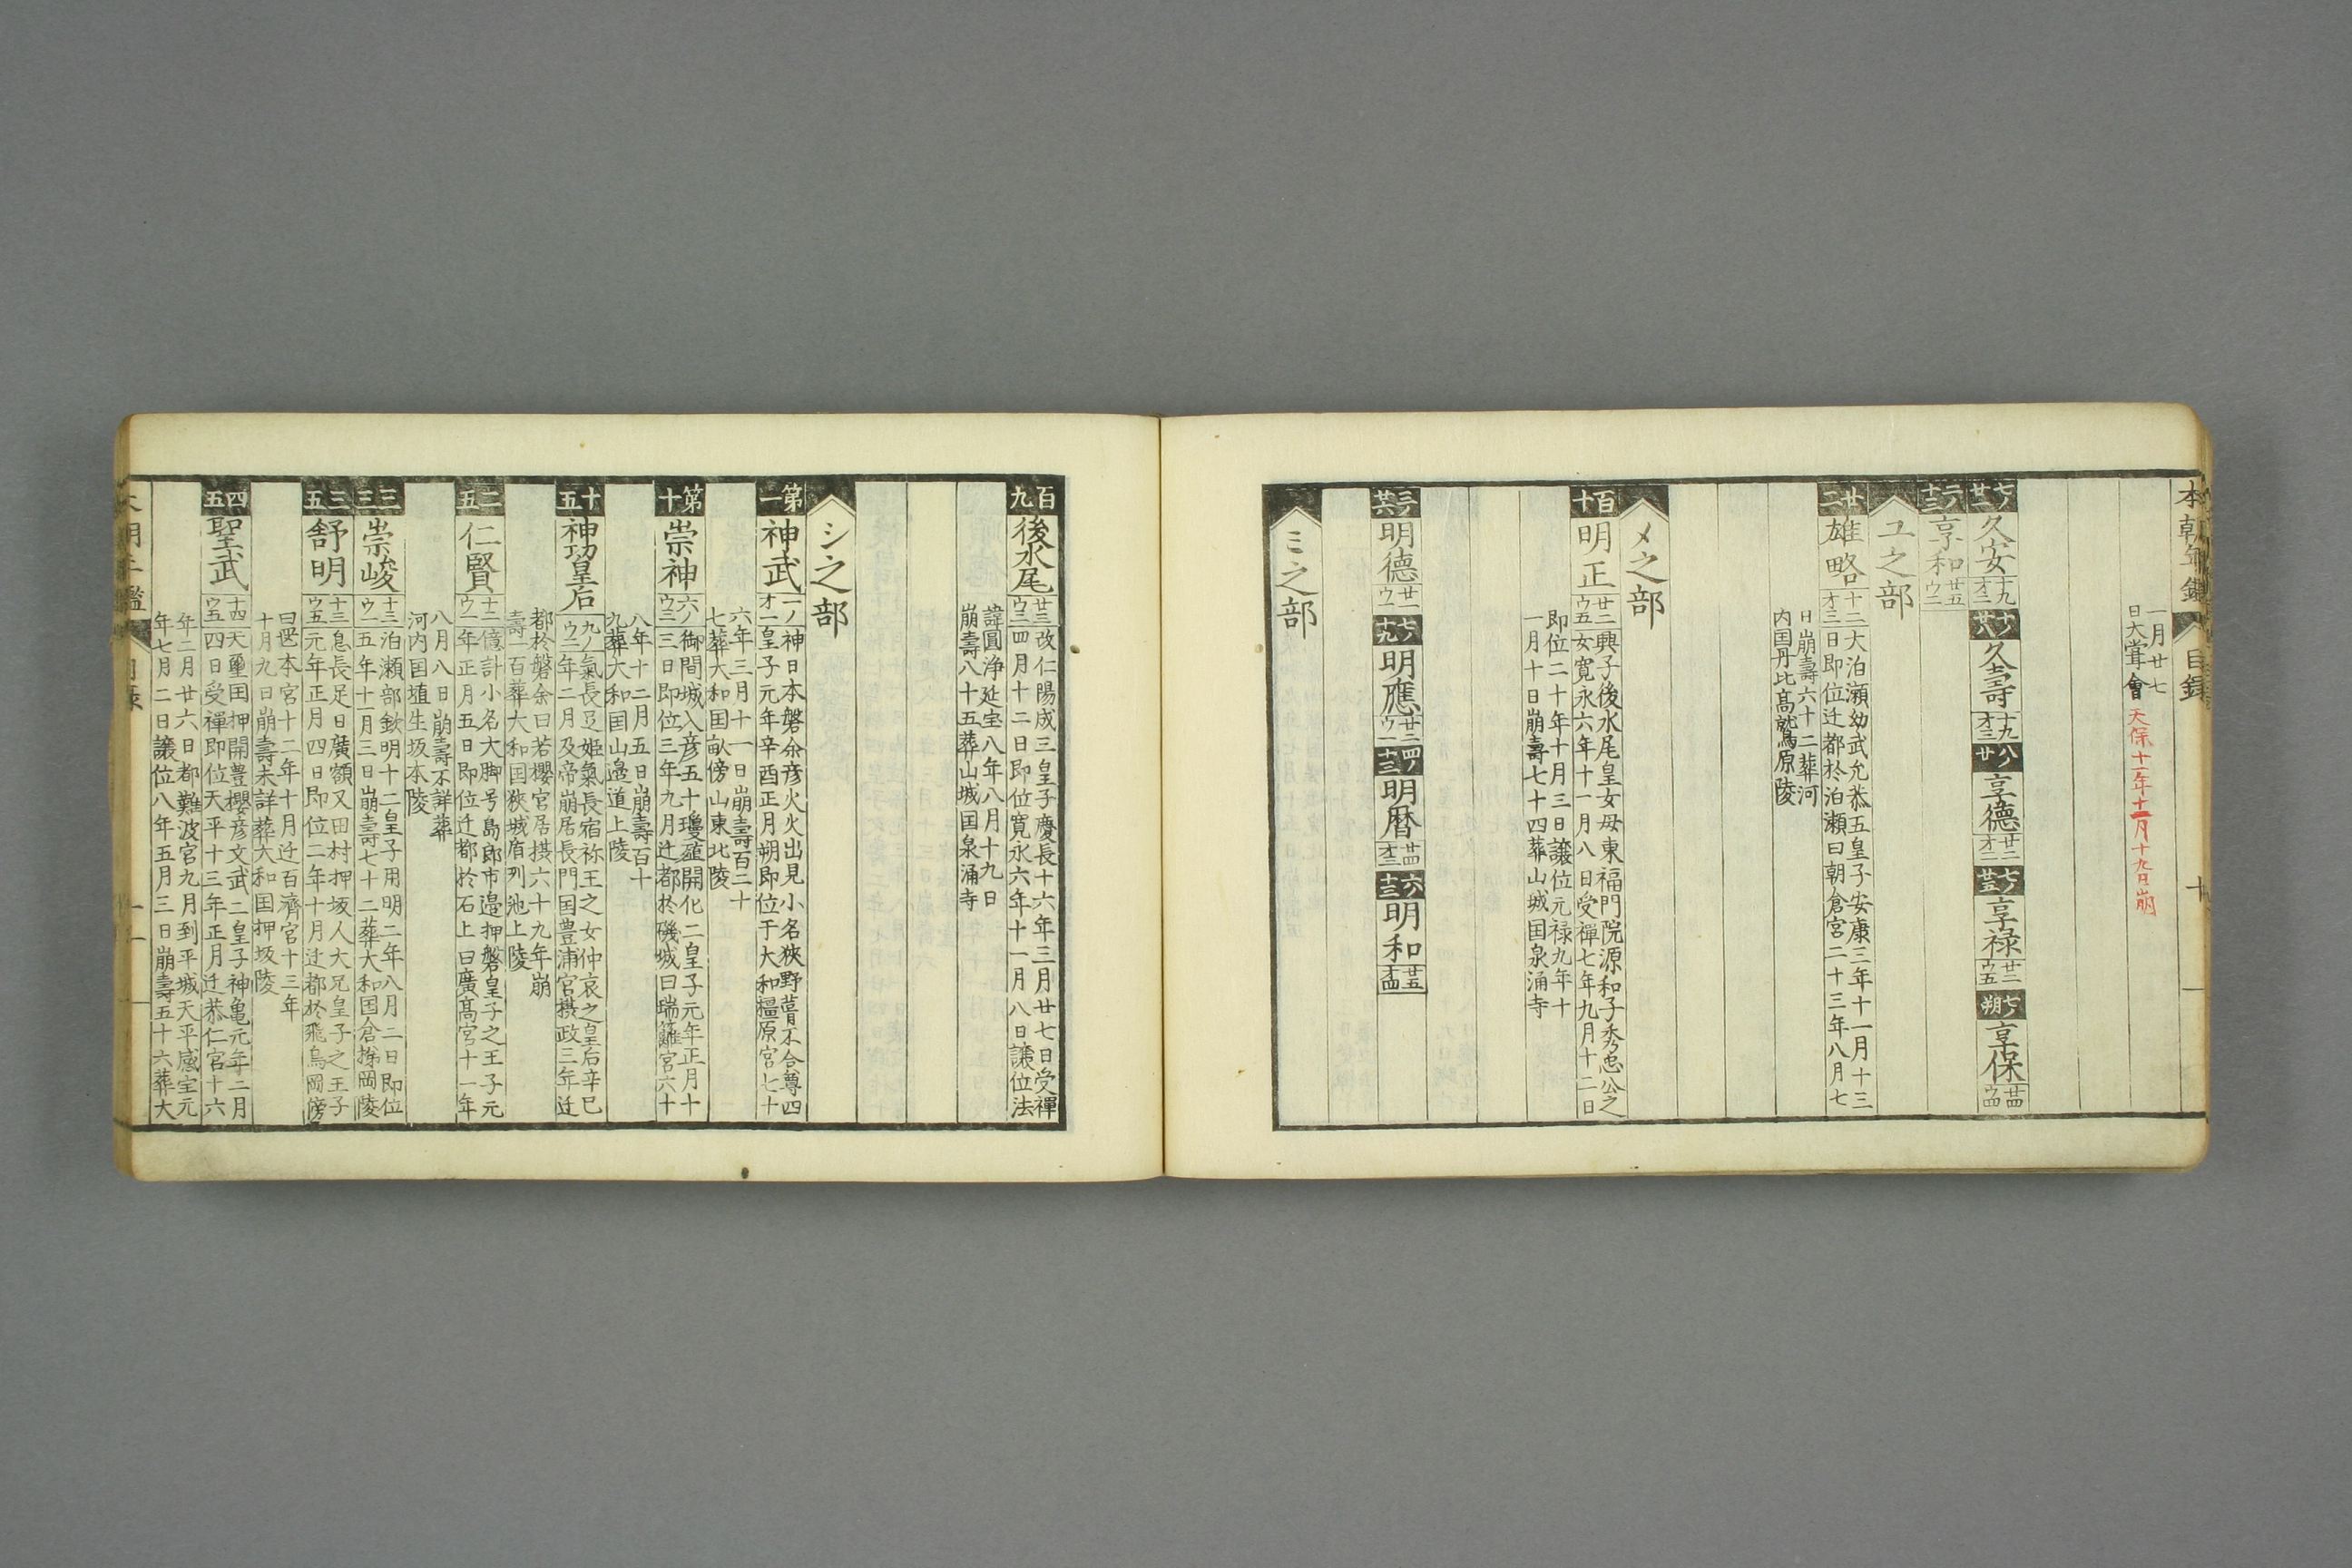 本朝年鑑 目録 十
一月廿七
日大嘗會 天保十一年十一月十九日崩
七ノ廿一 久安 十九オ二 十ノ廿八 久壽 十九オ三 八ノ廿 享德 廿二オ二 七ノ廿五 享禄 廿二ウ五 七ノ朔 享保 廿四ウ四
二ノ十三 享和 廿五ウ二
ユ之部
廿二 雄略 十二オ三
大泊瀬幼武允恭五皇子安康三年十一月十三
日即位迁都於泊瀬曰朝倉宮二十三年八月七
日崩壽六十二葬河
内国丹比髙鷲原陵
メ之部
百十 明正 廿二ウ五
興子後水尾皇女母東福門院源和子秀忠公之
女寛永六年十一月八日受禪七年九月十二日
即位二十年十月三日譲位元禄九年十
一月十日崩壽七十四葬山城国泉涌寺
三ノ廿六 明德 廿一ウ一 七ノ十九 明應 廿二ウ一 四ノ十三 明暦 廿四オ三 六ノ十三 明和 廿五オ四
ミ之部
百九 後水尾 廿三ウ三
改仁陽成三皇子慶長十六年三月廿七日受禪
四月十二日即位寛永六年十一月八日譲位法
諱圓浄延宝八年八月十九日
崩壽八十五葬山城国泉涌寺
シ之部
第一 神武 一ノオ一
神日本磐余彦火火出見小名狹野葺不合尊四
皇子元年辛酉正月朔即位于大和橿原宮七十
六年三月十一日崩壽百二十
七葬大和国畝傍山東北陵
第十 崇神 六ノウ三
御間城入彦五十瓊殖開化二皇子元年正月十
三日即位三年九月迁都於磯城曰瑞籬宮六十
八年十二月五日崩壽百十
九葬大和国山邉道上陵
十五 神功皇后 九ノウ三
氣長足姫氣長宿祢王之女仲哀之皇后辛巳
年二月及帝崩居長門国豊浦宮摂政三年迁
都於磐余曰若櫻宮居摂六十九年崩
壽一百葬大和国狹城盾列池上陵
二五 仁賢 十二ウ一
億計小名大脚号島郎市邉押磐皇子之王子元
年正月五日即位迁都於石上曰廣髙宮十一年
八月八日崩壽不詳葬
河内国埴生坂本陵
三三 崇峻 十三ウ一
泊瀬部欽明十二皇子用明二年八月二日即位
五年十一月三日崩壽七十二葬大和国倉掎岡陵
三五 舒明 十三ウ五
息長足日廣額又田村押坂人大兄皇子之王子
元年正月四日即位二年十月迁都於飛鳥岡傍
曰岡本宮十二年十月迁百濟宮十三年
十月九日崩壽未詳葬大和国押坂陵
四五 聖武 十四ウ五
天璽国押開豊櫻彦文武二皇子神亀元年二月
四日受禪即位天平十三年正月迁恭仁宮十六
年二月廿六日都難波宮九月到平城天平感宝元
年七月二日譲位八年五月三日崩壽五十六葬大